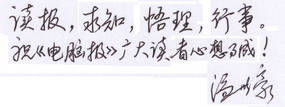 读报，求知，悟理，行事。
祝《电脑报》广大读者心想事成！